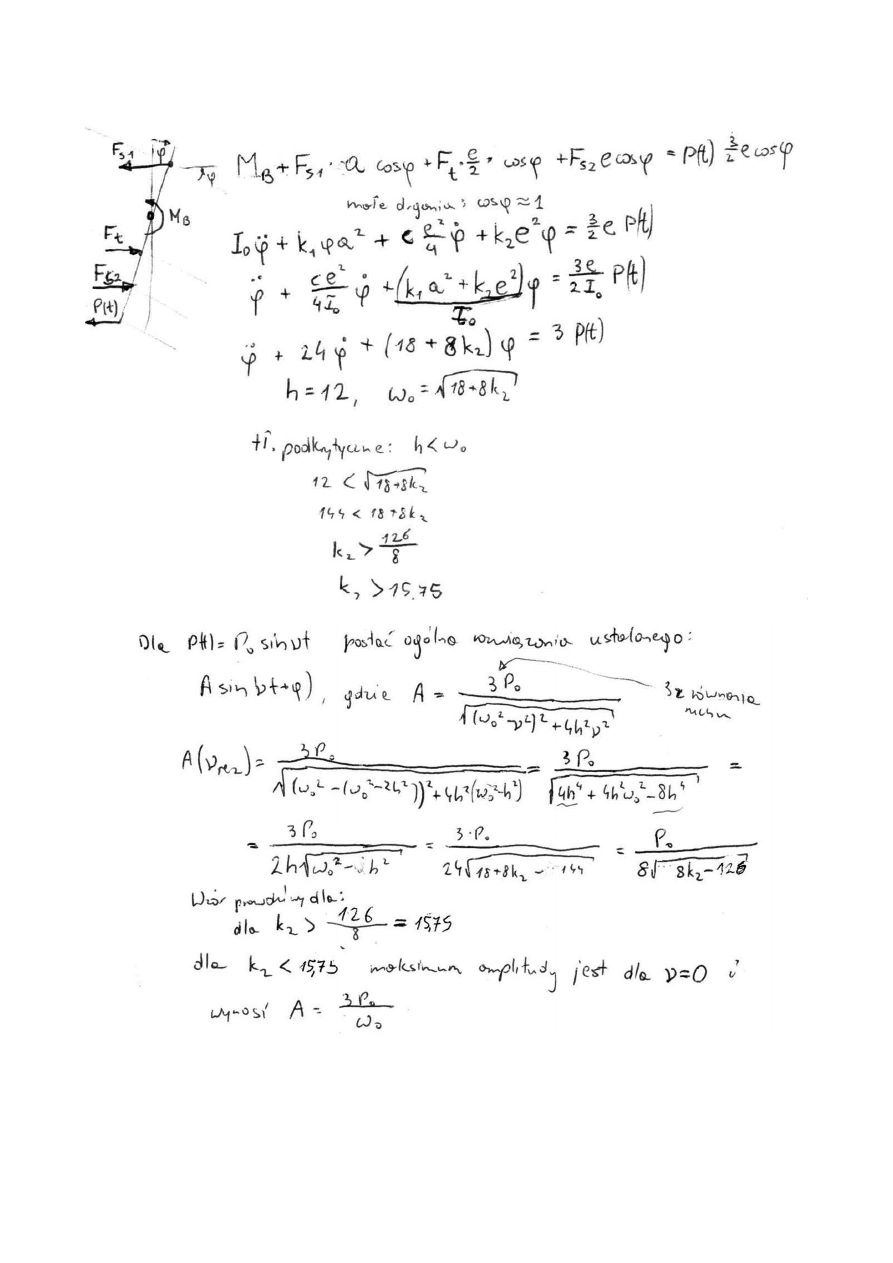 F_s1 φ
φ
M_B
F_t
F_s2
P(t)
M_B + F_s1 · a cosφ + F_t · e/2 · cosφ + F_s2 e cosφ = P(t) 3/2 e cosφ
małe drgania: cosφ ≈ 1
I₀φ̈ + k₁φa² + c e²/4 φ̇ + k₂e²φ = 3/2 e P(t)
φ̈ + ce²/4I₀ φ̇ + (k₁a² + k₂e²)/I₀ φ = 3e/2I₀ P(t)
φ̈ + 24φ̇ + (18 + 8k₂)φ = 3 P(t)
h = 12, ω₀ = √(18+8k₂)
tł. podkrytyczne: h < ω₀
12 < √(18+8k₂)
144 < 18+8k₂
k₂ > 126/8
k₂ > 15,75
Dla P(t) = P₀ sin νt postać ogólna rozwiązania ustalonego:
A sin(νt+φ), gdzie A = 3P₀/√((ω₀²-ν²)²+4h²ν²) 3 z równania ruchu
A(ν_rez) = 3P₀/√((ω₀²-(ω₀²-2h²))²+4h²(ω₀²-h²)) = 3P₀/√(4h⁴+4h²ω₀²-8h⁴) =
= 3P₀/2h√(ω₀²-h²) = 3·P₀/24√(18+8k₂-144) = P₀/8√(8k₂-126)
Wzór prawdziwy dla:
dla k₂ > 126/8 = 15,75
dla k₂ < 15,75 maksimum amplitudy jest dla ν=0 i
wynosi A = 3P₀/ω₀